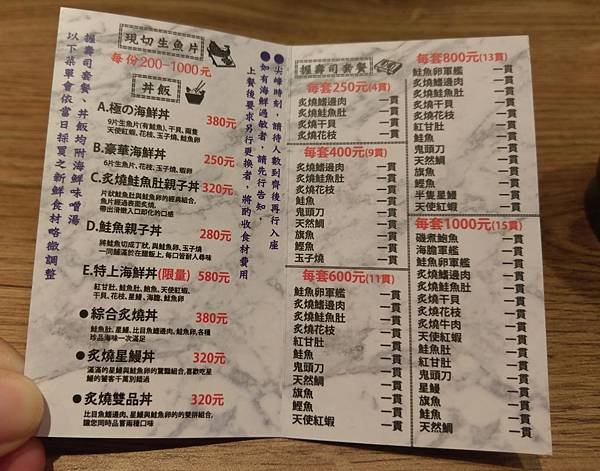 現切生魚片
每份200-1000元
丼飯
A.極の海鮮丼 380元
9片生魚片(有鮭魚)、干貝、兩隻
天使紅蝦、花枝、玉子燒、鮭魚卵
B.豪華海鮮丼 250元
6片生魚片、花枝、玉子燒、蝦卵
C.炙燒鮭魚肚親子丼 320元
片狀鮭魚肚與鮭魚卵的經典組合,
魚片經過表面炙燒,
帶出滑嫩入口即化的口感
D.鮭魚親子丼 280元
將鮭魚切成丁狀,與鮭魚卵、玉子燒
一同鋪滿於在醋飯上,每口皆耐人尋味
E.特上海鮮丼(限量) 580元
紅甘魚肚、鮭魚肚、鮑魚、天使紅蝦、
干貝、花枝、星鰻、海膽、鮭魚卵
●綜合炙燒丼 380元
鮭魚肚、星鰻、比目魚鰭邊肉、鮭魚卵,各種
珍品海味一次滿足
●炙燒星鰻丼 320元
滿滿的星鰻與鮭魚卵的驚豔組合,喜歡吃星
鰻的饕客千萬別錯過
●炙燒雙品丼 320元
比目魚鰭邊肉、星鰻與鮭魚卵的的雙拼組合,
讓您同時品嘗兩種口味
握壽司套餐、丼飯均附海鮮味噌湯
以下菜單會依當日採買之新鮮食材略微調整
●尖峰時刻,請待人數到齊後再行入座
●如有海鮮過敏者,請先行告知,
上餐後要求另行更換者,將酌收食材費用
握壽司套餐
每套250元(4貫)
炙燒鰭邊肉 一貫
炙燒鮭魚肚 一貫
炙燒干貝 一貫
炙燒花枝 一貫
每套400元(9貫)
炙燒鰭邊肉 一貫
炙燒鮭魚肚 一貫
炙燒花枝 一貫
鮭魚 一貫
鬼頭刀 一貫
天然鯛 一貫
旗魚 一貫
鰹魚 一貫
玉子燒 一貫
每套600元(11貫)
鮭魚卵軍艦 一貫
炙燒鰭邊肉 一貫
炙燒鮭魚肚 一貫
炙燒花枝 一貫
紅甘魚 一貫
鮭魚 一貫
鬼頭刀 一貫
天然鯛 一貫
旗魚 一貫
鰹魚 一貫
天使紅蝦 一貫
每套800元(13貫)
鮭魚卵軍艦 一貫
炙燒鰭邊肉 一貫
炙燒鮭魚肚 一貫
炙燒干貝 一貫
炙燒花枝 一貫
紅甘魚肚 一貫
鮭魚 一貫
鬼頭刀 一貫
天然鯛 一貫
旗魚 一貫
鰹魚 一貫
半隻星鰻 一貫
天使紅蝦 一貫
每套1000元(15貫)
磯煮鮑魚 一貫
海膽軍艦 一貫
鮭魚卵軍艦 一貫
炙燒鰭邊肉 一貫
炙燒鮭魚肚 一貫
炙燒干貝 一貫
炙燒花枝 一貫
炙燒牛肉 一貫
天使紅蝦 一貫
紅甘魚肚 一貫
鬼頭刀 一貫
星鰻 一貫
旗魚 一貫
鮭魚 一貫
天然鯛 一貫